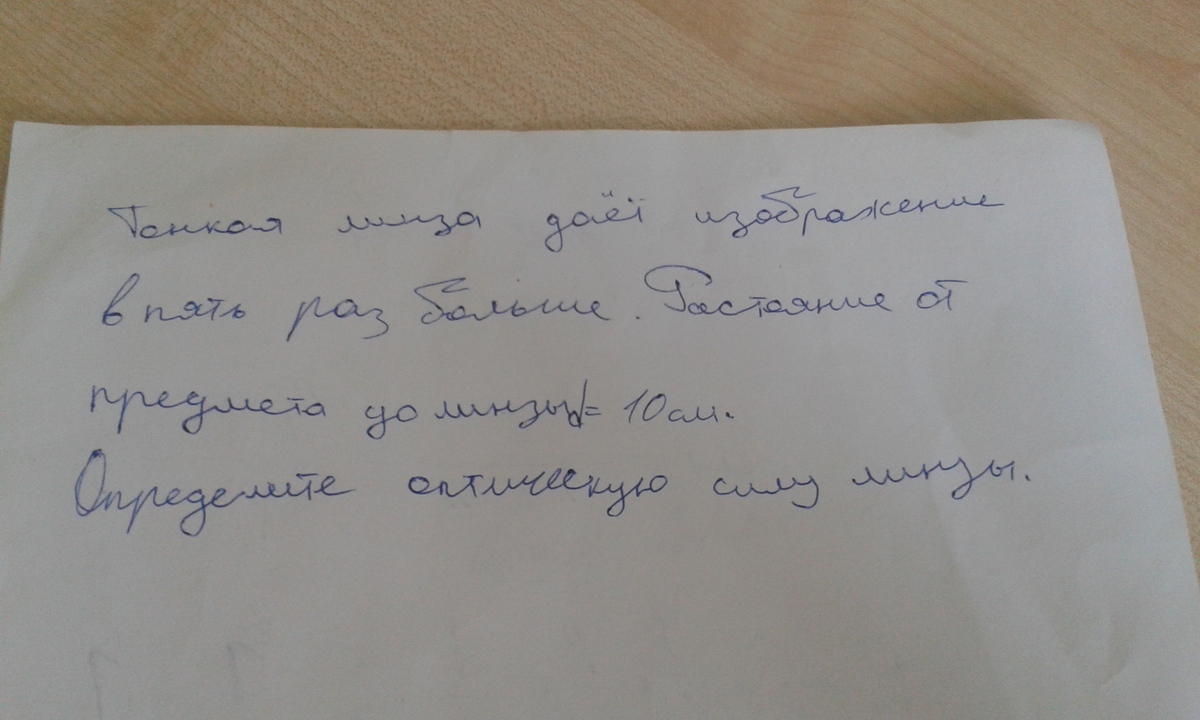 Тонкая линза даёт изображение
в пять раз больше. Растояние от
предмета до линзы d= 10 см.
Определите оптическую силу линзы.